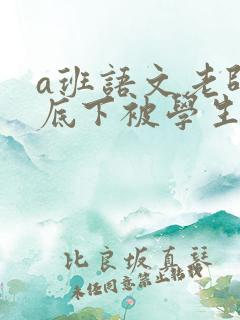 a班語文老師
底下被學生
比良坂真琴
未经同意禁止转载